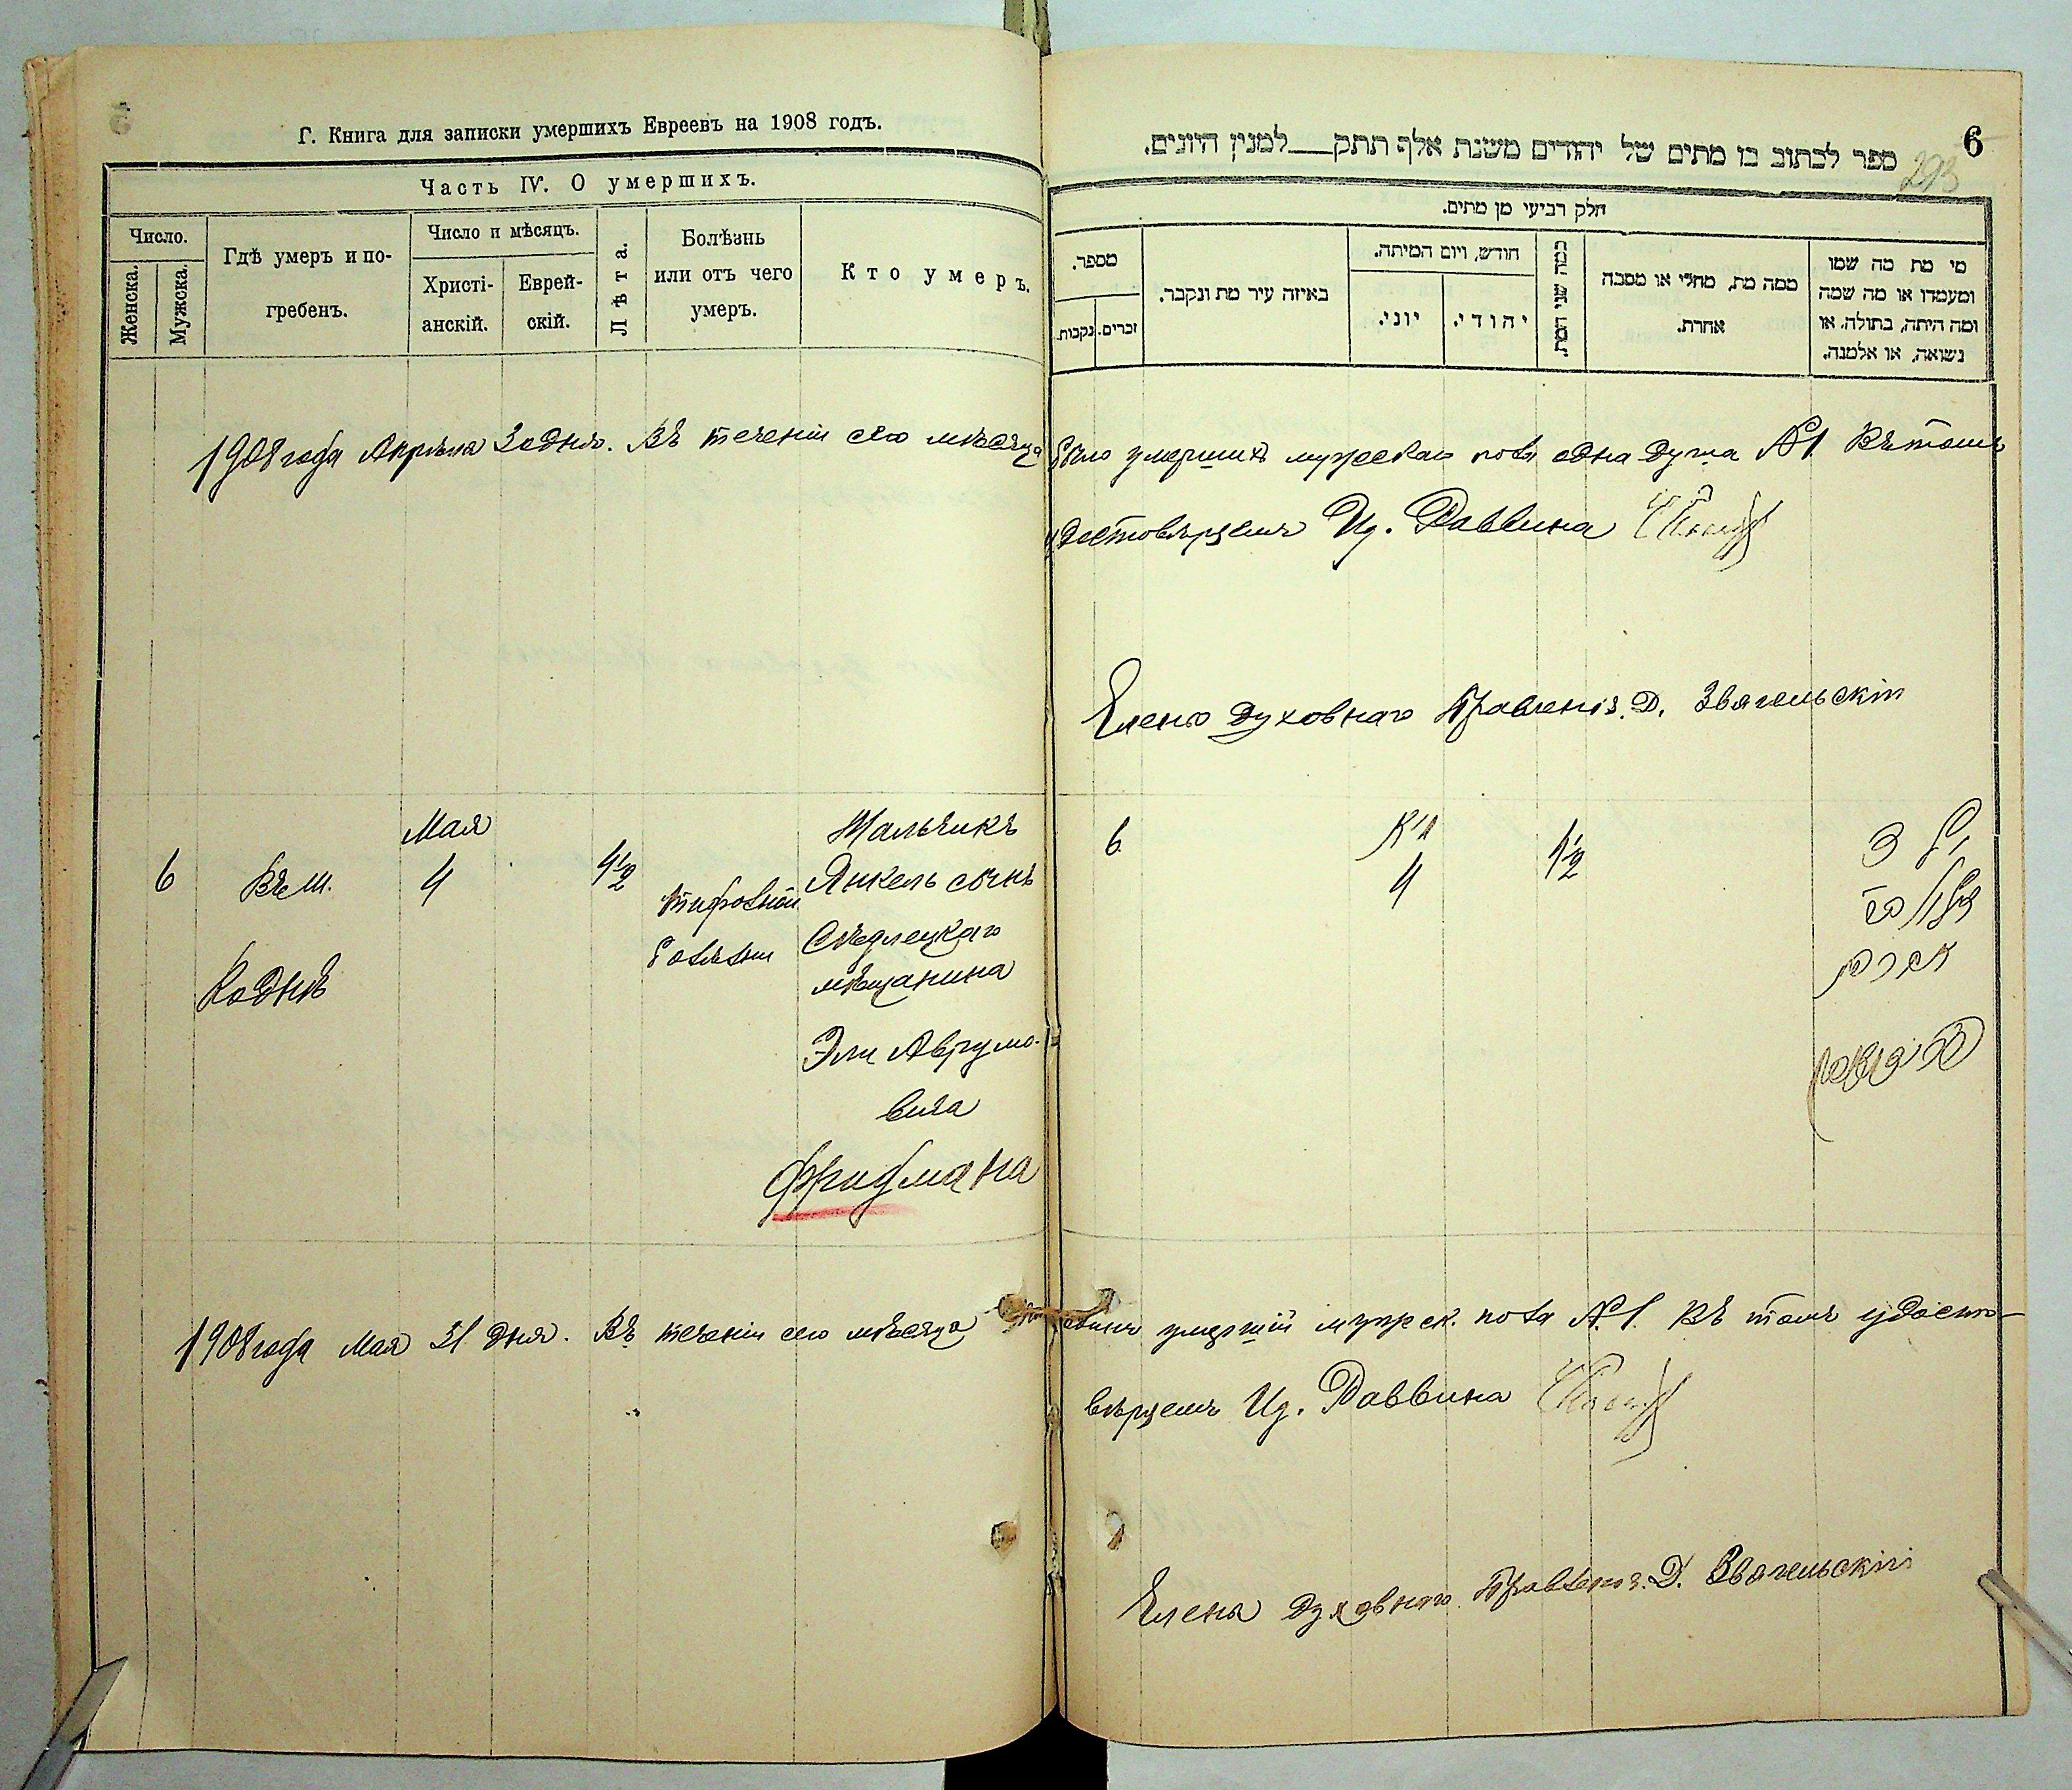 Г. Книга для записки умершихъ Евреевъ на 1908 годъ.
Часть IV. О умершихъ.
Число.
Женска.
Мужска.
Гдѣ умеръ и по-
гребенъ.
Число и мѣсяцъ.
Христі-
анскій.
Еврей-
скій.
Лѣта.
Болѣзнь
или отъ чего
умеръ.
Кто умеръ.
6
293
ספר לכתוב בו מתים של יהודים משנת אלף תתק למנין היונים.
חלק רביעי מן מתים.
מספר.
זכרים.
נקבות.
באיזה עיר מת ונקבר.
חודש, ויום המיתה.
יוני.
יהודי.
כמה שני המת.
ממה מת, מחלי או מסבה
אחרת.
מי מת מה שמו
ומעמדו או מה שמה
ומה היתה, בתולה, או
נשואה, או אלמנה.
1908 года Апрѣля 30 дня. Въ теченіи сего мѣсяца было умершихъ мужскаго пола одна душа №1 Въ томъ
удостовѣряемъ Ид. Раввина
Членъ Духовнаго Правленія. Д. Звягельскій
6
Въ м.
Коднѣ
Мая
4
4½
тифозной
болѣзни
Мальчикъ
Янкель сынъ
Сѣдлецкаго
мѣщанина
Эли Аврумо-
вича
Фридмана
6
4
1½
1908 года Мая 31 дня. Въ теченіи сего мѣсяца умершій мужск. пола №1. Въ томъ удосто-
вѣряемъ Ид. Раввина
Члена Духовнаго Правленія. Д. Звягельскій